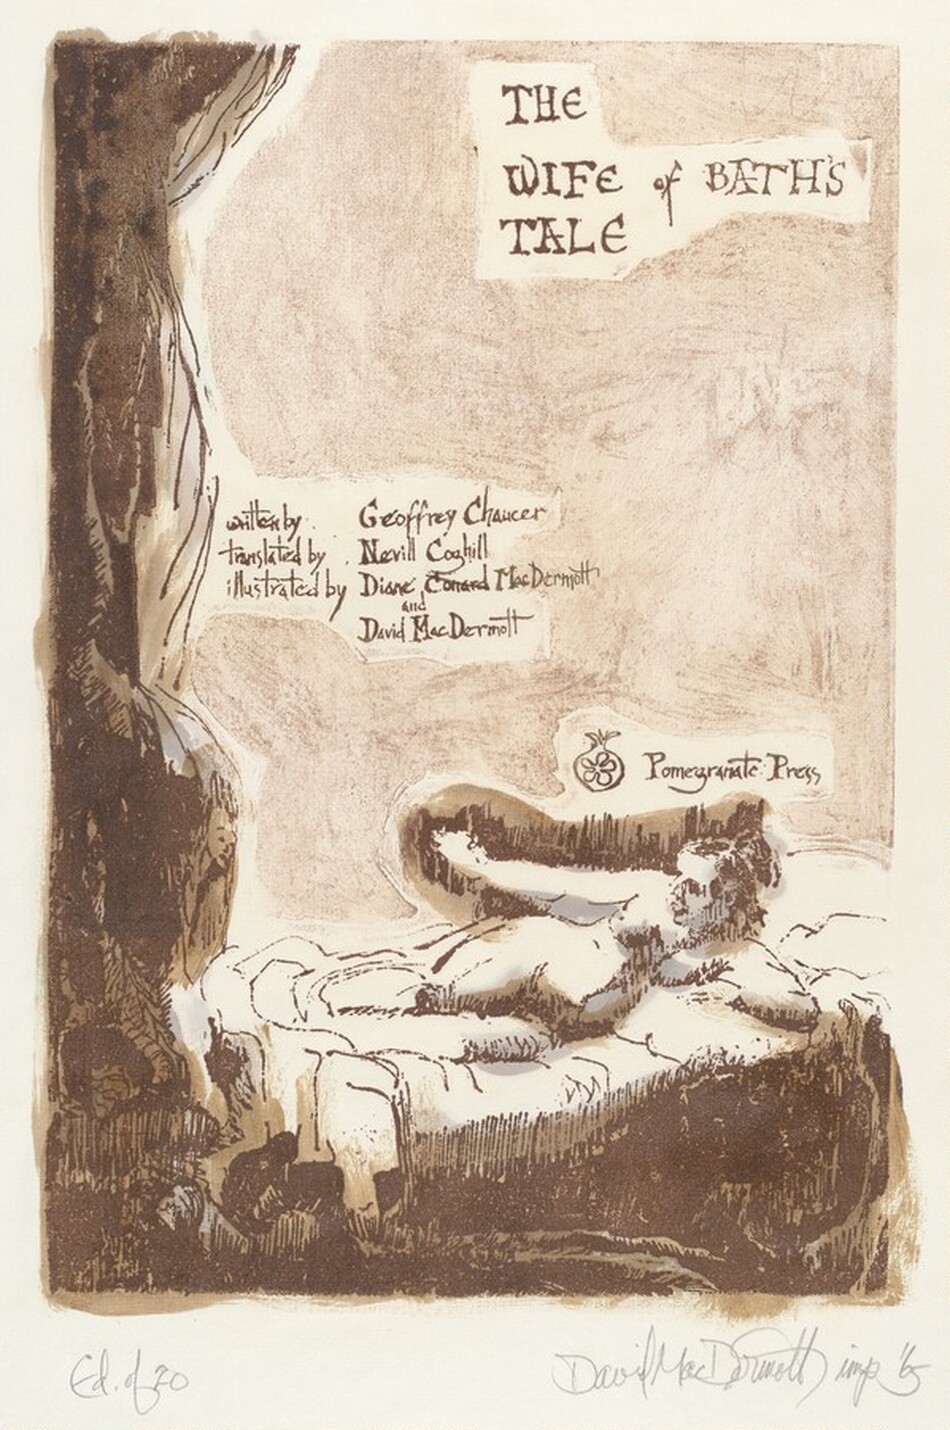 THE
WIFE of BATH'S
TALE
written by Geoffrey Chaucer
translated by Nevill Coghill
illustrated by Diane Conard MacDermott
and
David MacDermott
Pomegranate Press
Ed. of 20
David MacDermott imp '65